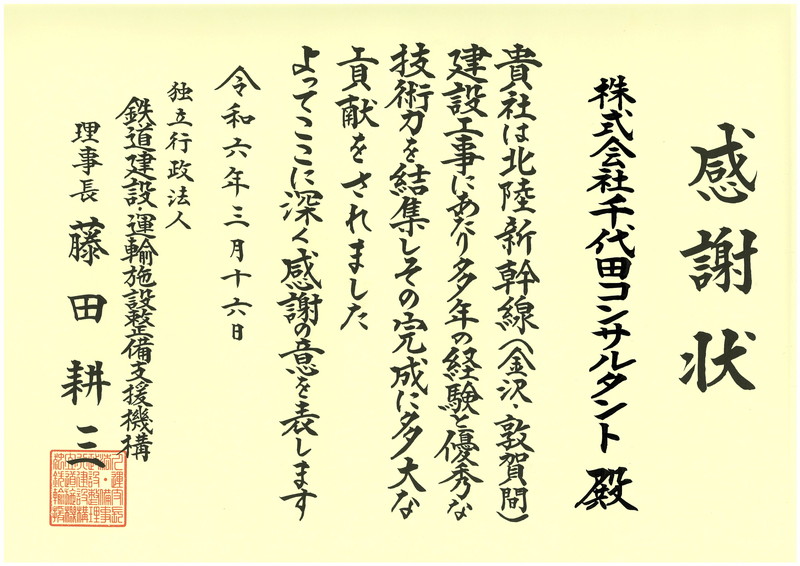 感謝状
株式会社千代田コンサルタント 殿
貴社は北陸新幹線(金沢・敦賀間)
建設工事にあたり多年の経験と優秀な
技術力を結集しその完成に多大な
貢献をされました
よってここに深く感謝の意を表します
令和六年三月十六日
独立行政法人
鉄道建設・運輸施設整備支援機構
理事長 藤田耕三